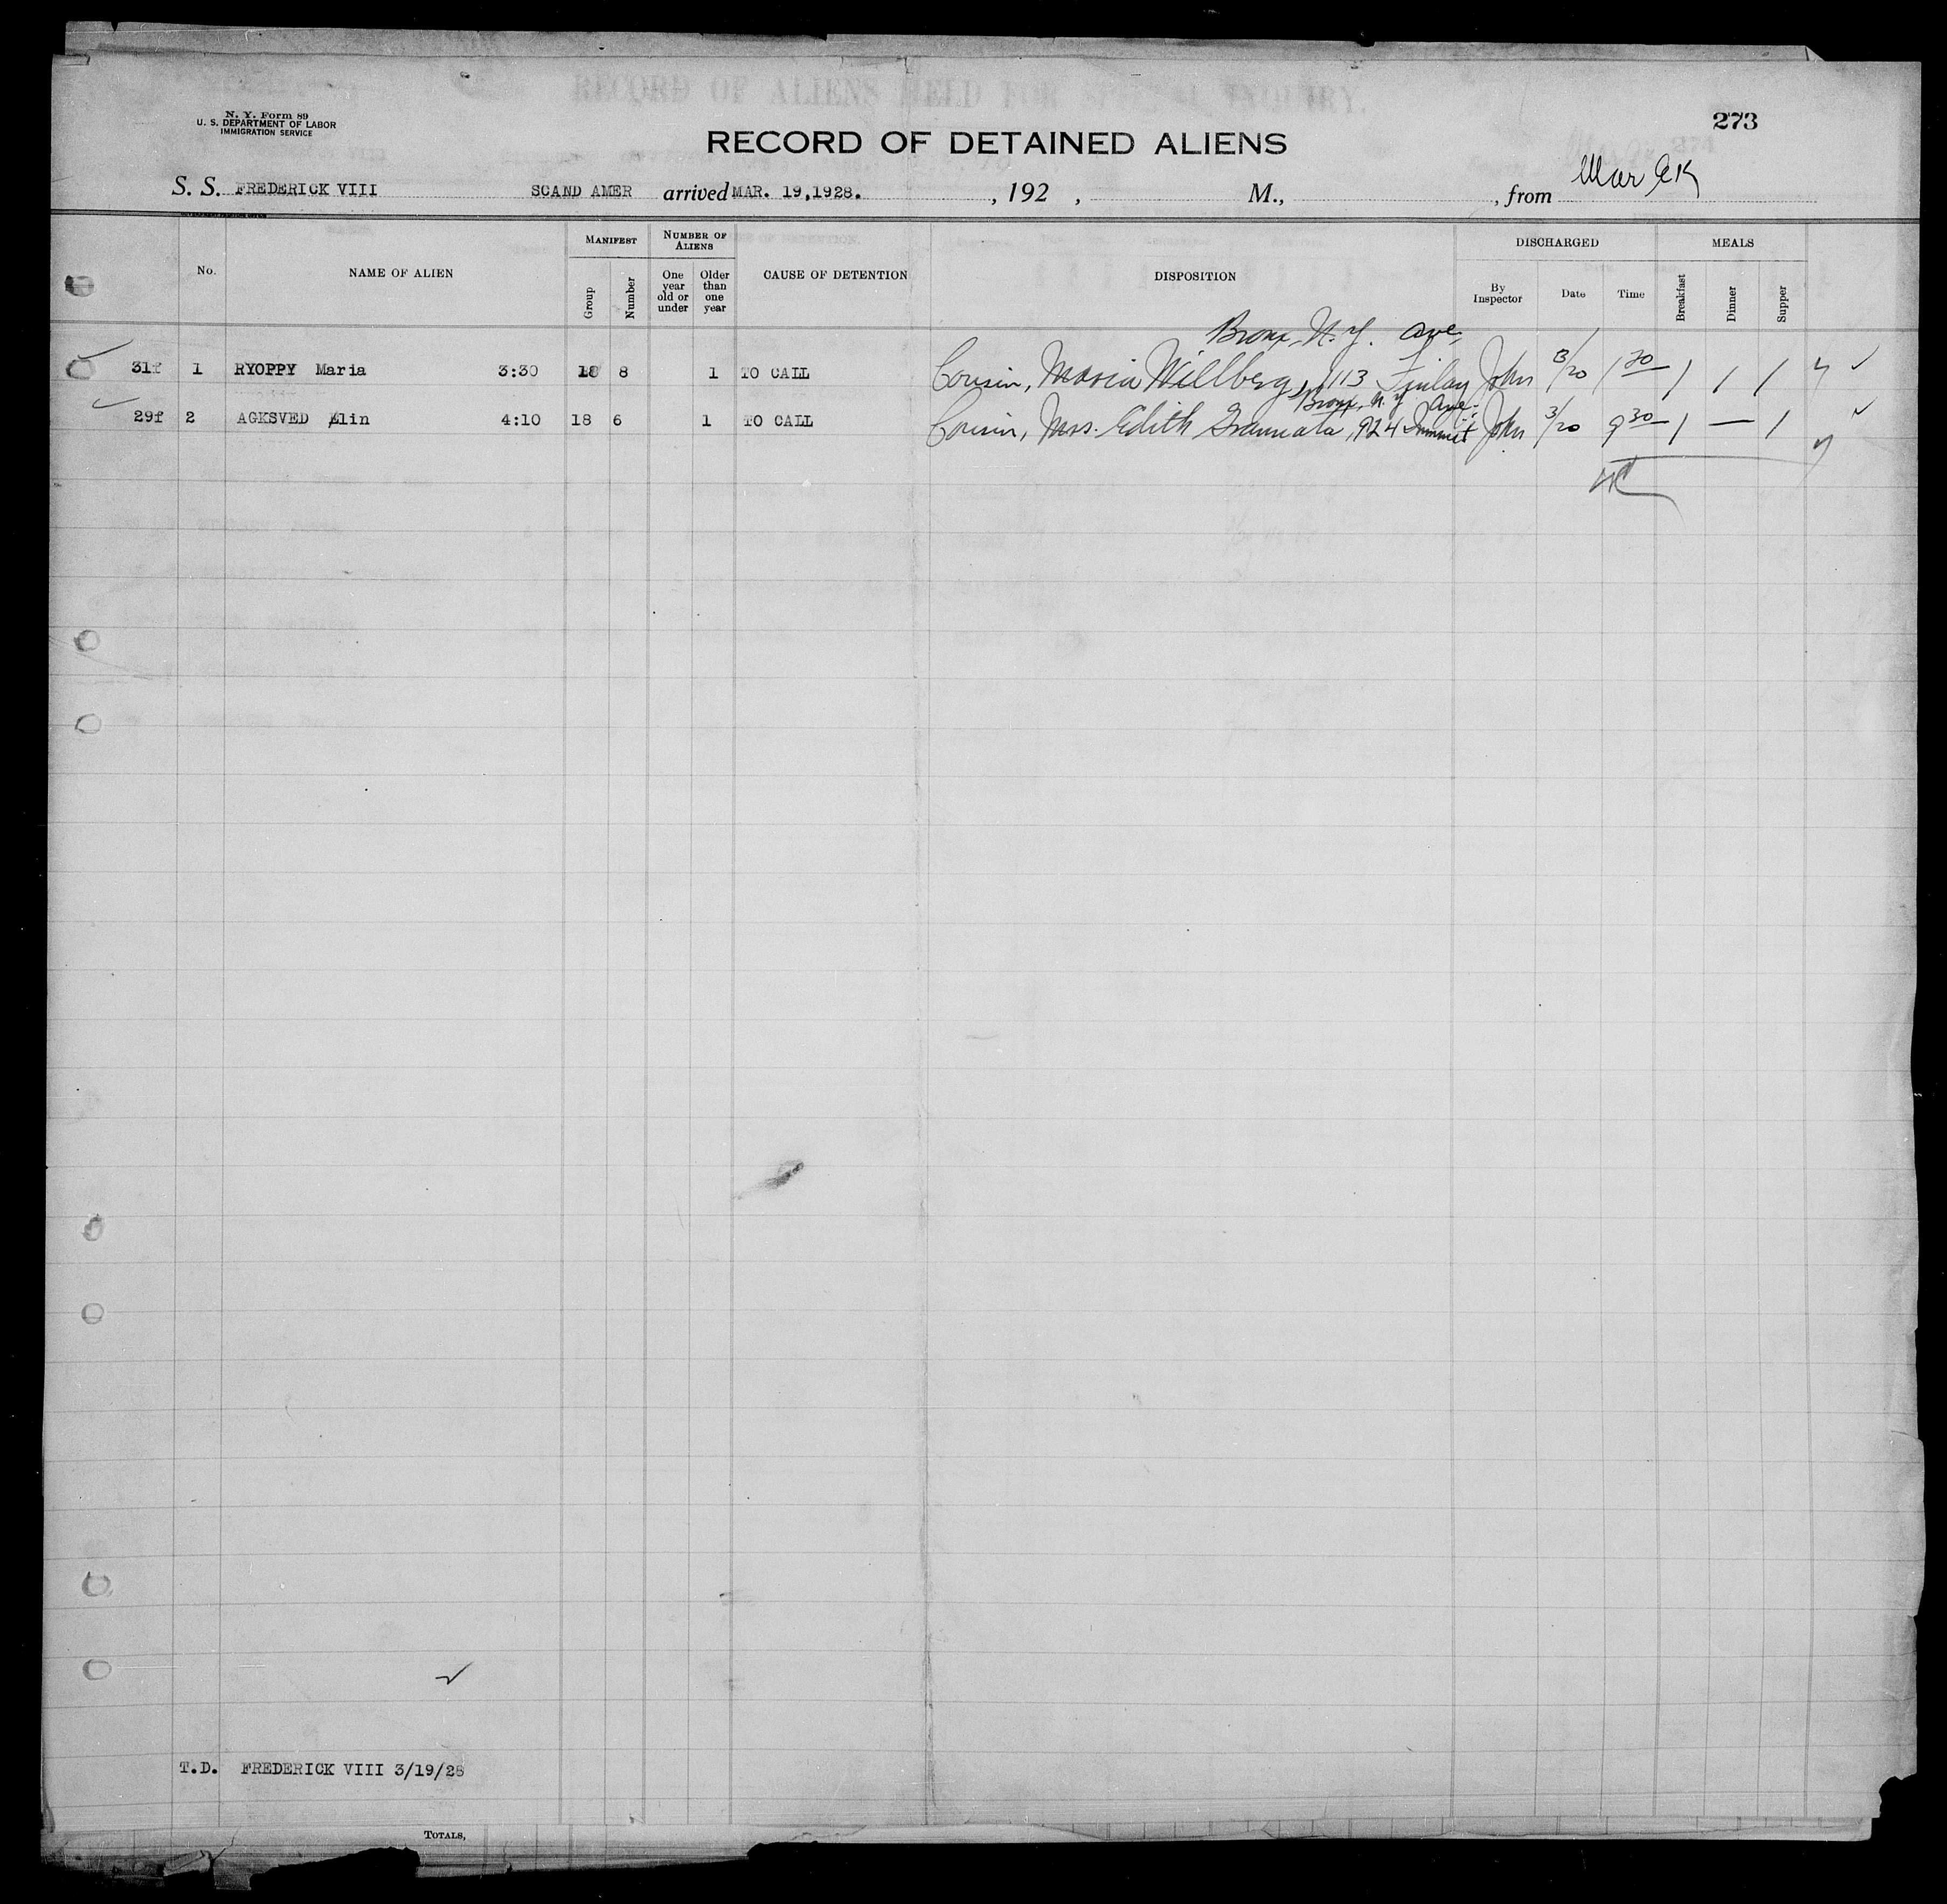 N. Y. Form 89
U. S. DEPARTMENT OF LABOR
IMMIGRATION SERVICE
273
RECORD OF ALIENS HELD FOR SPECIAL INQUIRY.
RECORD OF DETAINED ALIENS
S. S. FREDERICK VIII SCAND AMER arrived MAR. 19,1928. , 192 , M., , from
No. NAME OF ALIEN MANIFEST Group Number NUMBER OF ALIENS One year old or under Older than one year CAUSE OF DETENTION DISPOSITION DISCHARGED By Inspector Date Time MEALS Breakfast Dinner Supper
Bronx, N.Y. Ave,
31f 1 RYOPPY Maria 3:30 18 8 1 TO CALL Cousin, Maria Willberg, 1113 Finlay John 3/20 1 20 1 1 1
Bronx, N.Y. Ave.
29f 2 AGKSVED Elin 4:10 18 6 1 TO CALL Cousin, Mrs. Edith 924 Summit John 3/20 9 30 1 — 1
T.D. FREDERICK VIII 3/19/28
TOTALS,